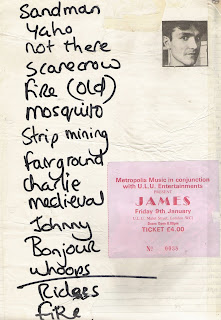 Sandman
Yaho
not there
Scarecrow
Fire (old)
mosquito
Strip mining
fairground
charlie
medieval
Johnny
Bonjour
whoops
Ridges
fire
Metropolis Music in conjunction
with U.L.U. Entertainments
PRESENT
JAMES
Friday 9th January
TICKET £4.00
Nº